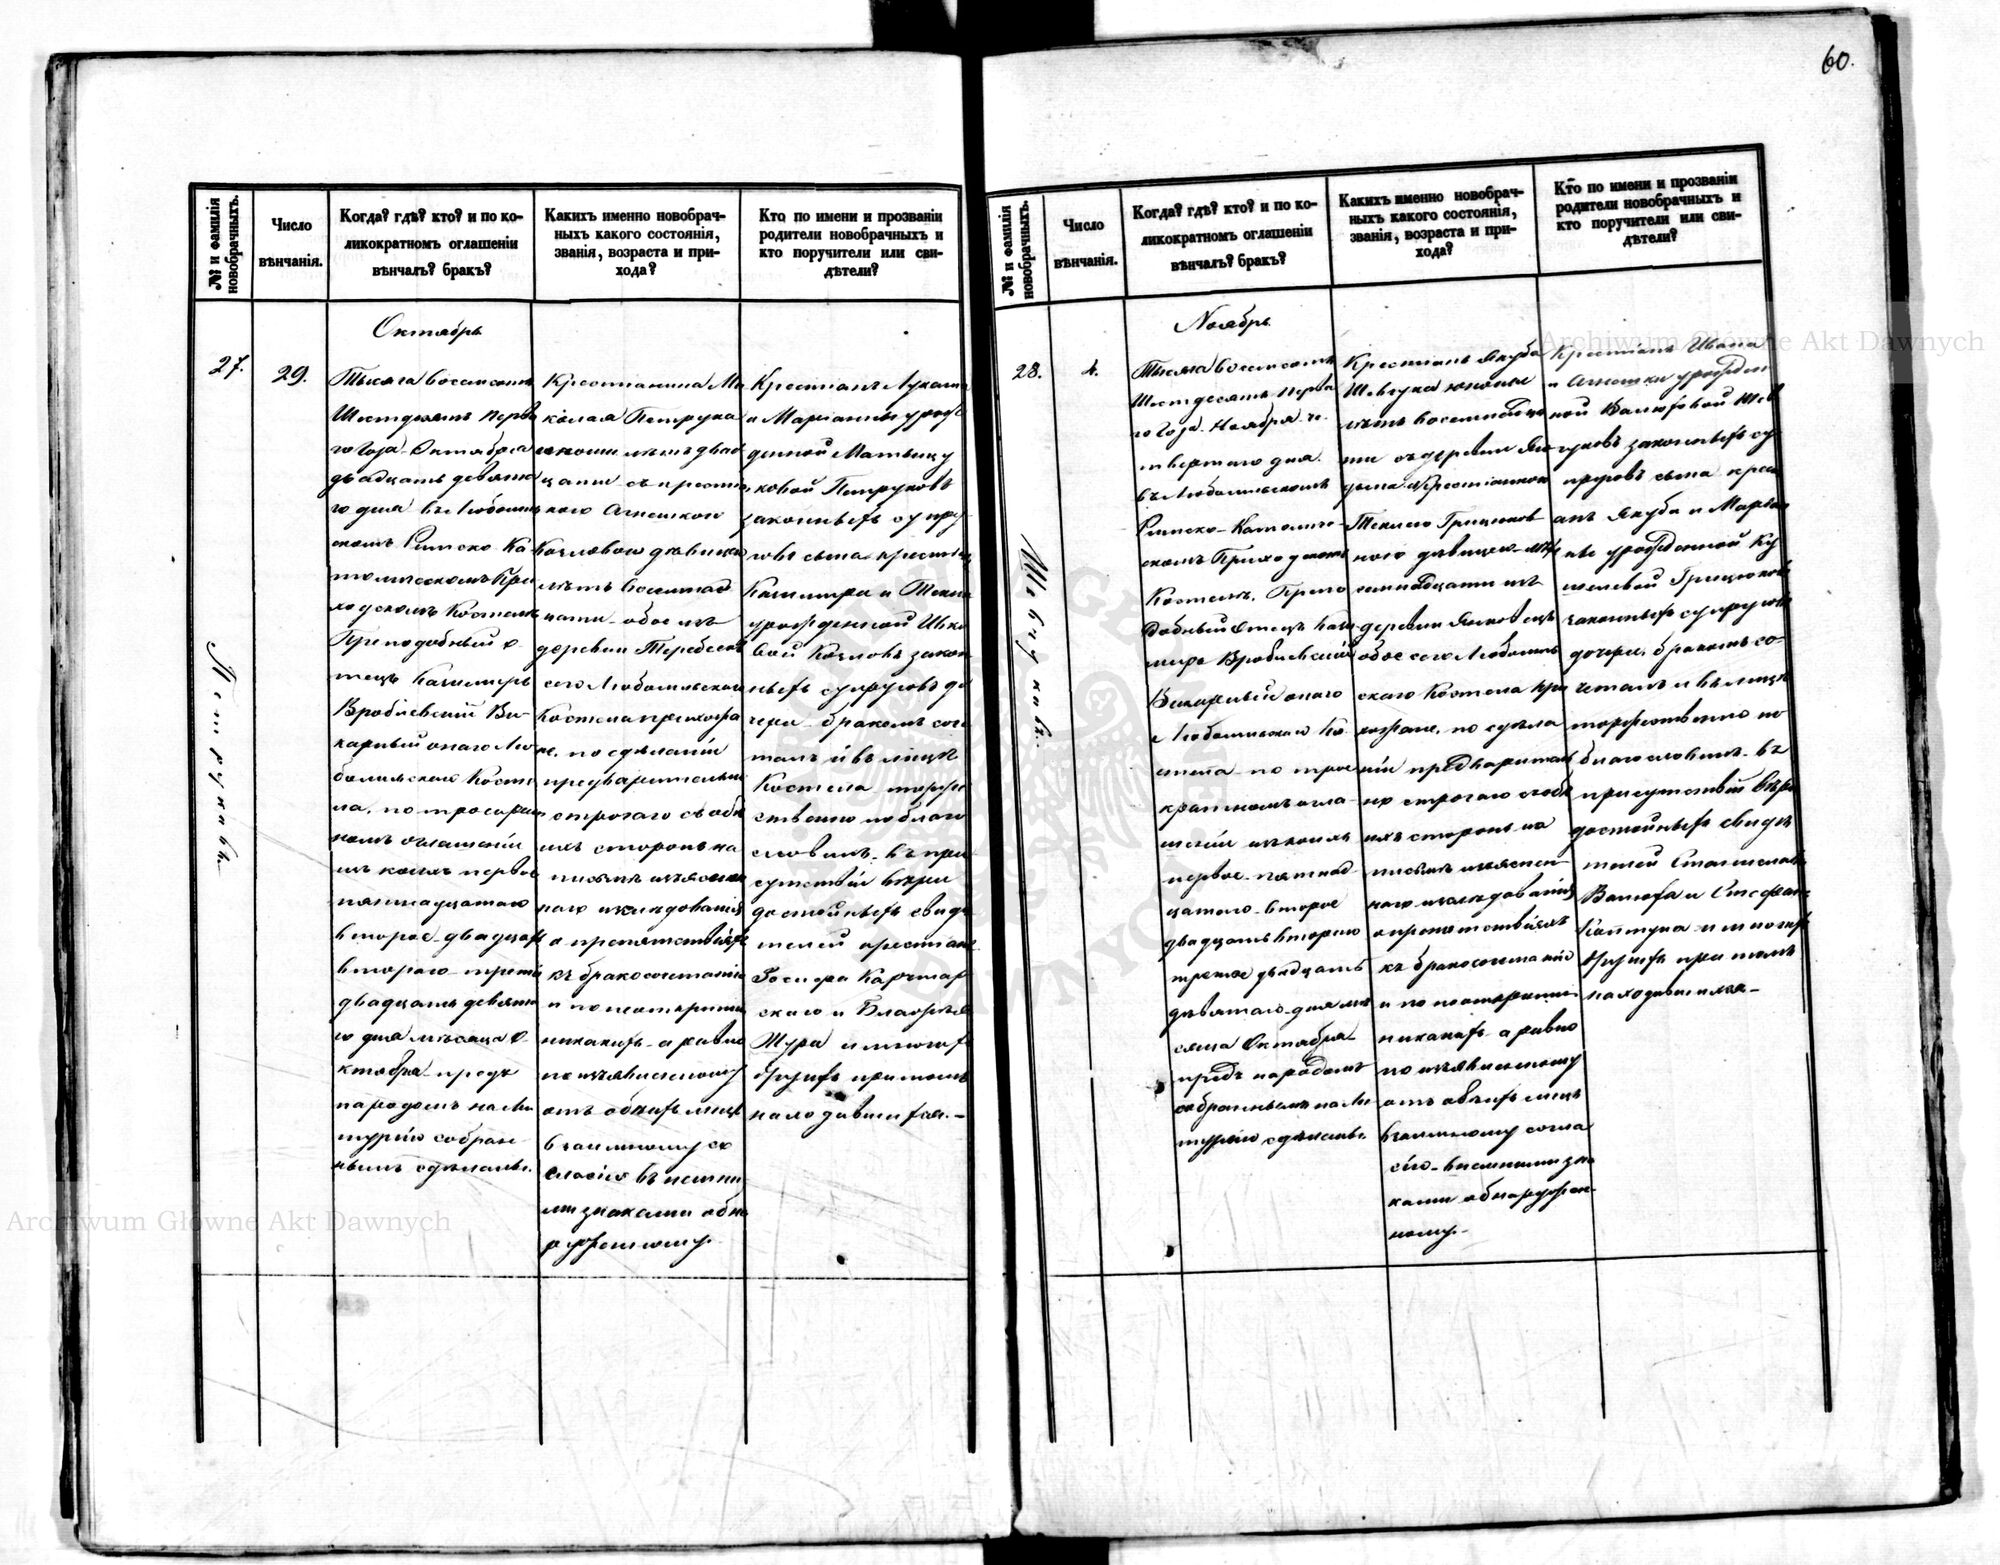 60.
№ и фамилія
новобрачныхъ.
Число
вѣнчанія.
Когда? гдѣ? кто? и по ко-
ликократномъ оглашеніи
вѣнчалъ? бракъ?
Какихъ именно новобрач-
ныхъ какого состоянія,
званія, возраста и при-
хода?
Кто по имени и прозванію
родители новобрачныхъ и
кто поручители или сви-
дѣтели?
27.
Петруковъ.
29.
Октябрь
Тысяча восемсотъ
Шестдесятъ перва
го года Октября
двадцать девята
го дня въ Любомль
скомъ Римско Ка
толическомъ При
ходскомъ Костелѣ
Преподобный О
тецъ Казимиръ
Вробл́евскій Ви-
карный онаго Лю
бомльскаго Косте
ла, по троекрат
номъ оглашеніи
изъ коихъ первое
пятнадцатаго
второе двадцать
втораго третіе
двадцать девята
го дня мѣсяца О-
ктября предъ
народомъ на Ли
тургію собран-
нымъ сдѣланы.
Крестьянина Ми
колая Петрука
юношу лѣтъ двад
цати съ крестья
нкою Агнешкою
Козловою дѣвицею
лѣтъ восемнад
цати обоє изъ
деревни Теребеек
сего Любомльскаго
Костела прихожа
не, по сдѣланіи
предварительно
строгаго съ обѣ
ихъ сторонъ на
письмѣ изъяснен
наго изслѣдованія
о препятствіяхъ
къ бракосочетанію
и по неоткрытіи
никакихъ а равно
по изъявленному
отъ обѣихъ лицъ
взаимному со
гласію внѣшни
ми знаками обна
руженному.
Крестьянъ Лукаша
и Маріанны урож
денной Матвиу
ковой Петруковъ
законныхъ супру
говъ сына крестьянъ
Казимира и Теклі
урожденной Шко
вой Козловъ закон
ныхъ супруговъ до
черь бракомъ соче
талъ и въ лицѣ
Костела торже
ственно поблаго
словилъ въ при
сутствіи вѣро
достойныхъ свидѣ
телей крестьянъ
Іосифа Карчмар
скаго и Блажея
Жура и многихъ
другихъ при томъ
находившихся.—
№ и фамилія
новобрачныхъ.
Число
вѣнчанія.
Когда? гдѣ? кто? и по ко-
ликократномъ оглашеніи
вѣнчалъ? бракъ?
Какихъ именно новобрач-
ныхъ какого состоянія,
званія, возраста и при-
хода?
Кто по имени и прозванію
родители новобрачныхъ и
кто поручители или сви-
дѣтели?
28.
Шевчуковъ.
4.
Ноябрь
Тысяча восемсотъ
Шестдесятъ перва
го года Ноября че
твертаго дня
въ Любомльскомъ
Римско-Католиче
скомъ Приходскомъ
Костелѣ, Препо
добный Отецъ Кази
миръ Вроблевскій
Викарный онаго
Любомльскаго Ко
стела по трое
кратномъ огла-
шеніи изъ коихъ
первое пятнад
цатаго второе
двадцать втораго
третіе двадцать
девятаго дня мѣ
сяца Октября
предъ народомъ
собраннымъ на Ли
тургію сдѣланы.
Крестьянъ Якуба
Шевчука юношу
лѣтъ восемнадца
ти съ деревни Яго
дына съ Крестьянкою
Теклею Грицюков
ною дѣвицею лѣтъ
семнадцати изъ
деревни
обоє сего Любомль
скаго Костела при
хожане, по сдѣла
ніи предваритель
но строгаго съ обѣ
ихъ сторонъ на
письмѣ изъяснен
наго изслѣдованія
о препятствіяхъ
къ бракосочетанію
и по неоткрытіи
никакихъ а равно
по изъявленному
отъ обѣихъ лицъ
взаимному согла
сію внѣшними зна
ками обнаружен-
ному.
Крестьянъ Ивана
и Агнешки урожден
ной Валюфовой Шев
чуковъ законныхъ су
пруговъ сына крес
анъ Якуба и Марьян
ны урожденной Ку
шелевой Грицюковъ
законныхъ супругов
дочерь бракомъ со-
четалъ и въ лицѣ
торжественно по
благословилъ въ
присутствіи вѣро
достойныхъ свидѣ
телей Станислава
Валюфа и Стефана
Колтуна и многихъ
другихъ при томъ
находившихся—
Archiwum Główne Akt Dawnych
Archiwum Główne Akt Dawnych